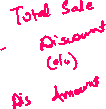 Total Sale
- Discount
(0/0)
Dis Amount